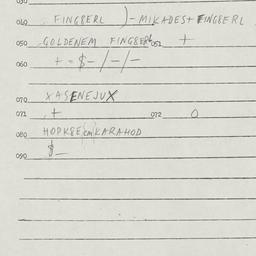 030
040 FINGBERL )-MIKADES+FINGBERL
050 GOLDENEM FINGBERL 051 +
060 +=$-/-/-
070 XASENEJUX
071 + 072 0
080 HOPK8E(M)KARAHOD
$-
090